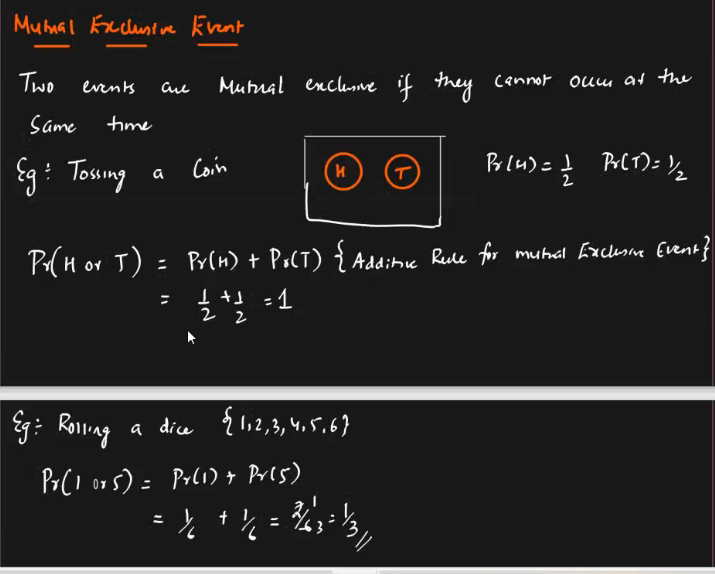 Mutual Exclusive Event
Two events are Mutual exclusive if they cannot occur at the
same time
Eg : Tossing a Coin
H T
Pr(H) = 1/2 Pr(T) = 1/2
Pr(H or T) = Pr(H) + Pr(T) {Additive Rule for mutual Exclusive Event}
= 1/2 + 1/2 = 1
Eg : Rolling a dice {1,2,3,4,5,6}
Pr(1 or 5) = Pr(1) + Pr(5)
= 1/6 + 1/6 = 2/6 1 3 = 1/3 //